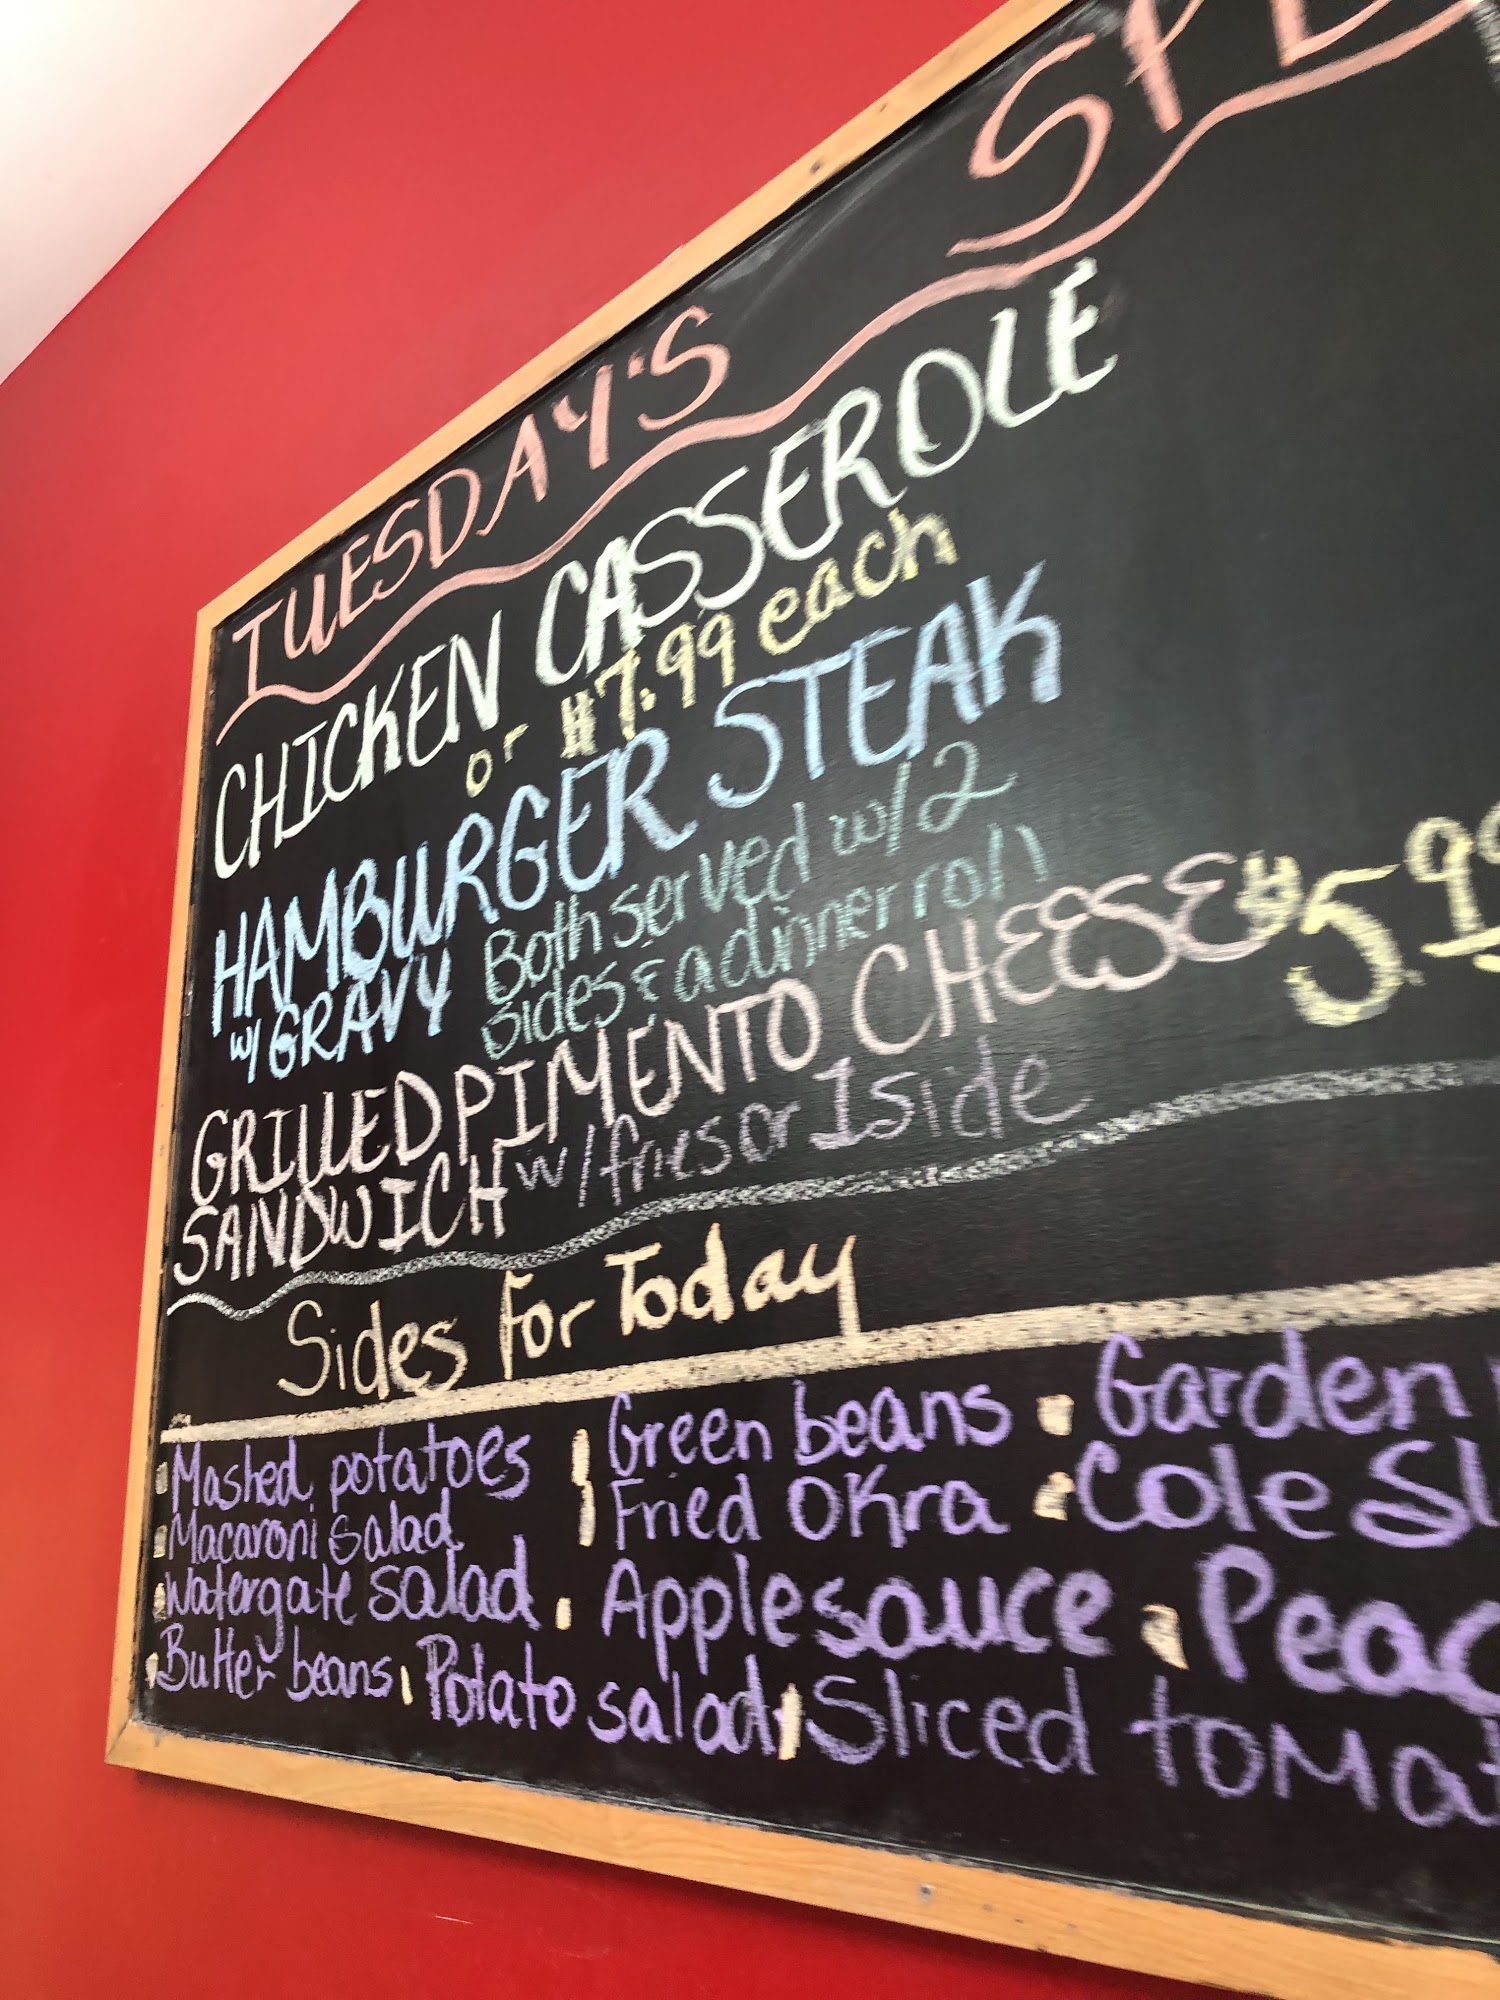 TUESDAY'S SPE
CHICKEN CASSEROLE
or $7.99 each
HAMBURGER STEAK
w/ GRAVY Both served w/2
sides & a dinner roll
GRILLED PIMENTO CHEESE $5.99
SANDWICH w/ fries or 1 side
Sides For Today
Mashed potatoes Green beans Garden
Macaroni salad Fried Okra Cole Sl
Watergate salad Applesauce Peac
Butter beans Potato salad Sliced tomat